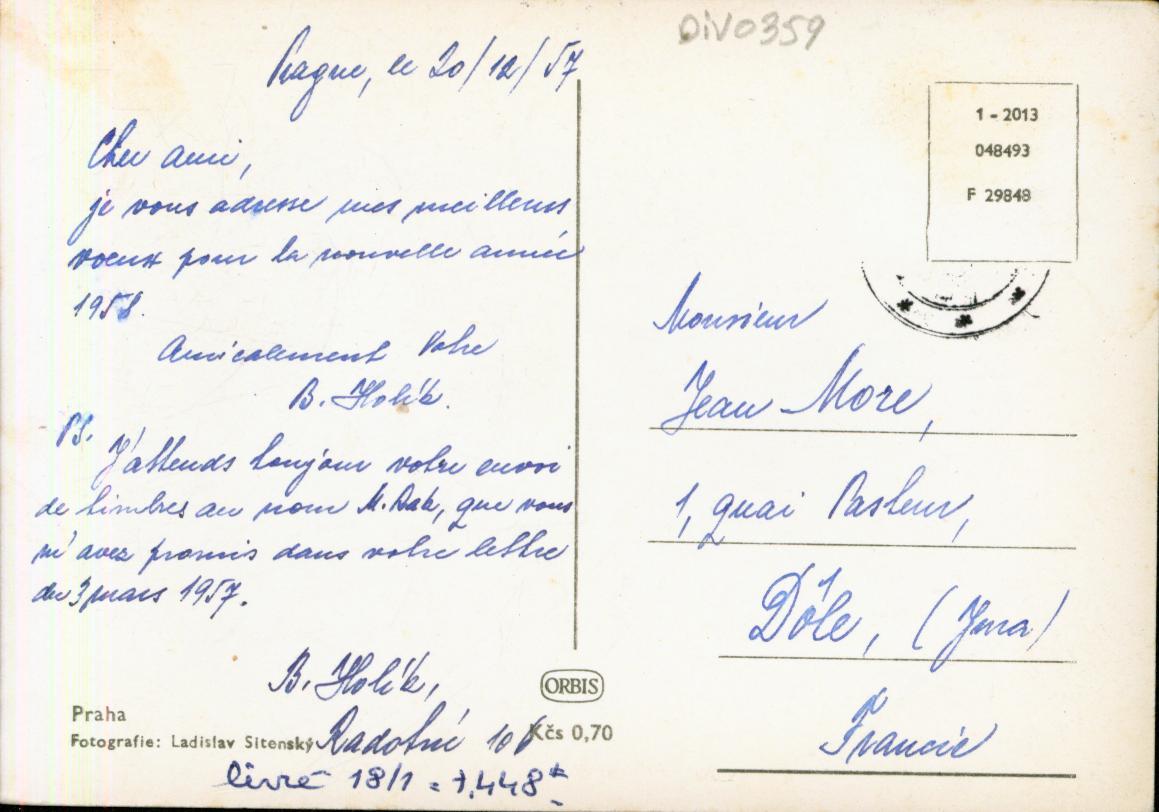 DIV0359
Prague, le 20/12/57
Cher ami,
je vous adresse mes meilleurs
voeux pour la nouvelle année
1958.
Amicalement Votre
B. Holík.
PS.
J'attends toujour votre envoi
de timbres au nom M. Dab, que vous
m'avez promis dans votre lettre
du 3 mars 1957.
B. Holík,
Radotín 106
livré 18/1 = 7.448
Praha
Fotografie: Ladislav Sitenský
ORBIS
Kčs 0,70
1 - 2013
048493
F 29848
Monsieur
Jean More,
1, quai Pasteur,
Dôle, (Jura)
Francie